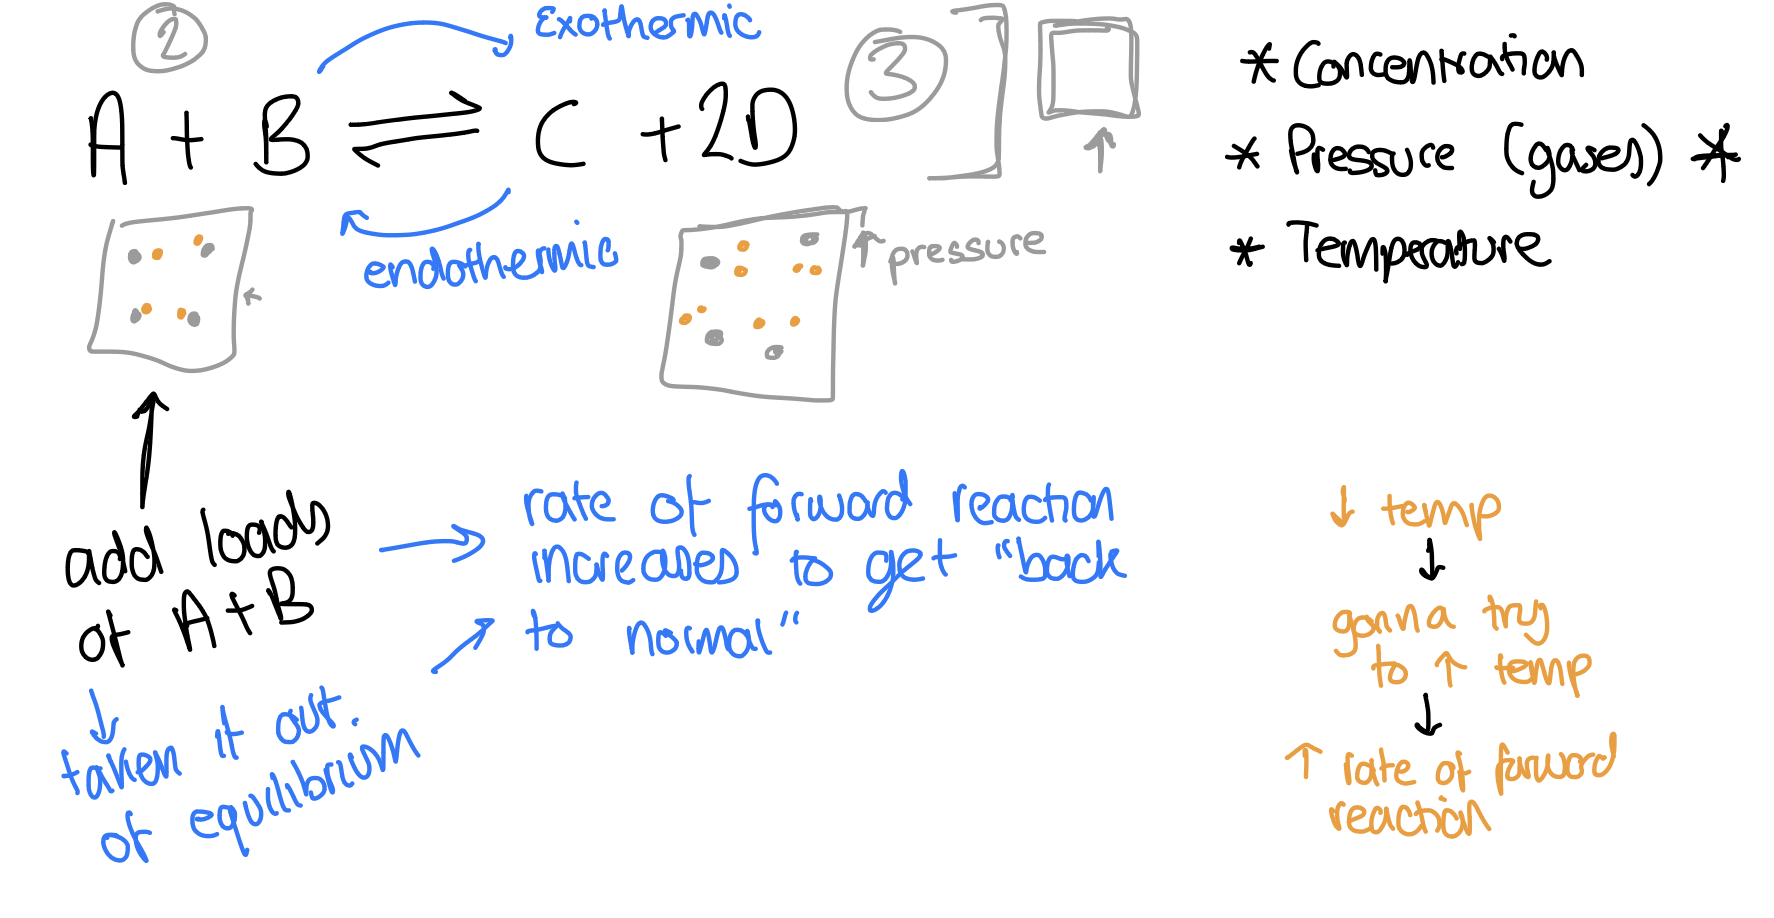 2
Exothermic
A + B ⇌ C + 2D
3
endothermic
↑ pressure
* Concentration
* Pressure (gases) *
* Temperature
add loads
of A+B
↓
taken it out
of equilibrium
→ rate of forward reaction
increases to get "back
to normal"
↓ temp
↓
gonna try
to ↑ temp
↓
↑ rate of forward
reaction